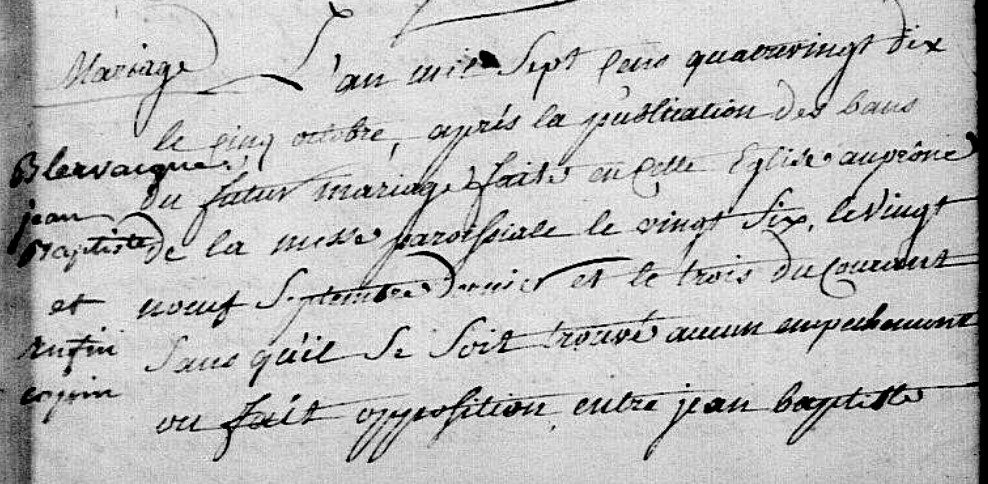 Mariage
L'an mil Sept Cens quatrevingt dix
le cinq octobre, après la publication des bans
du futur mariage faite en Cette Eglise au prône
de la messe paroissiale le vingt Six, le Vingt
noeuf Septembre Dernier et le trois du Courant
Sans qu'il Se Soit trouvé aucun empechement
ou fait opposition entre jean baptiste
Blervacque
jean
Baptiste
et